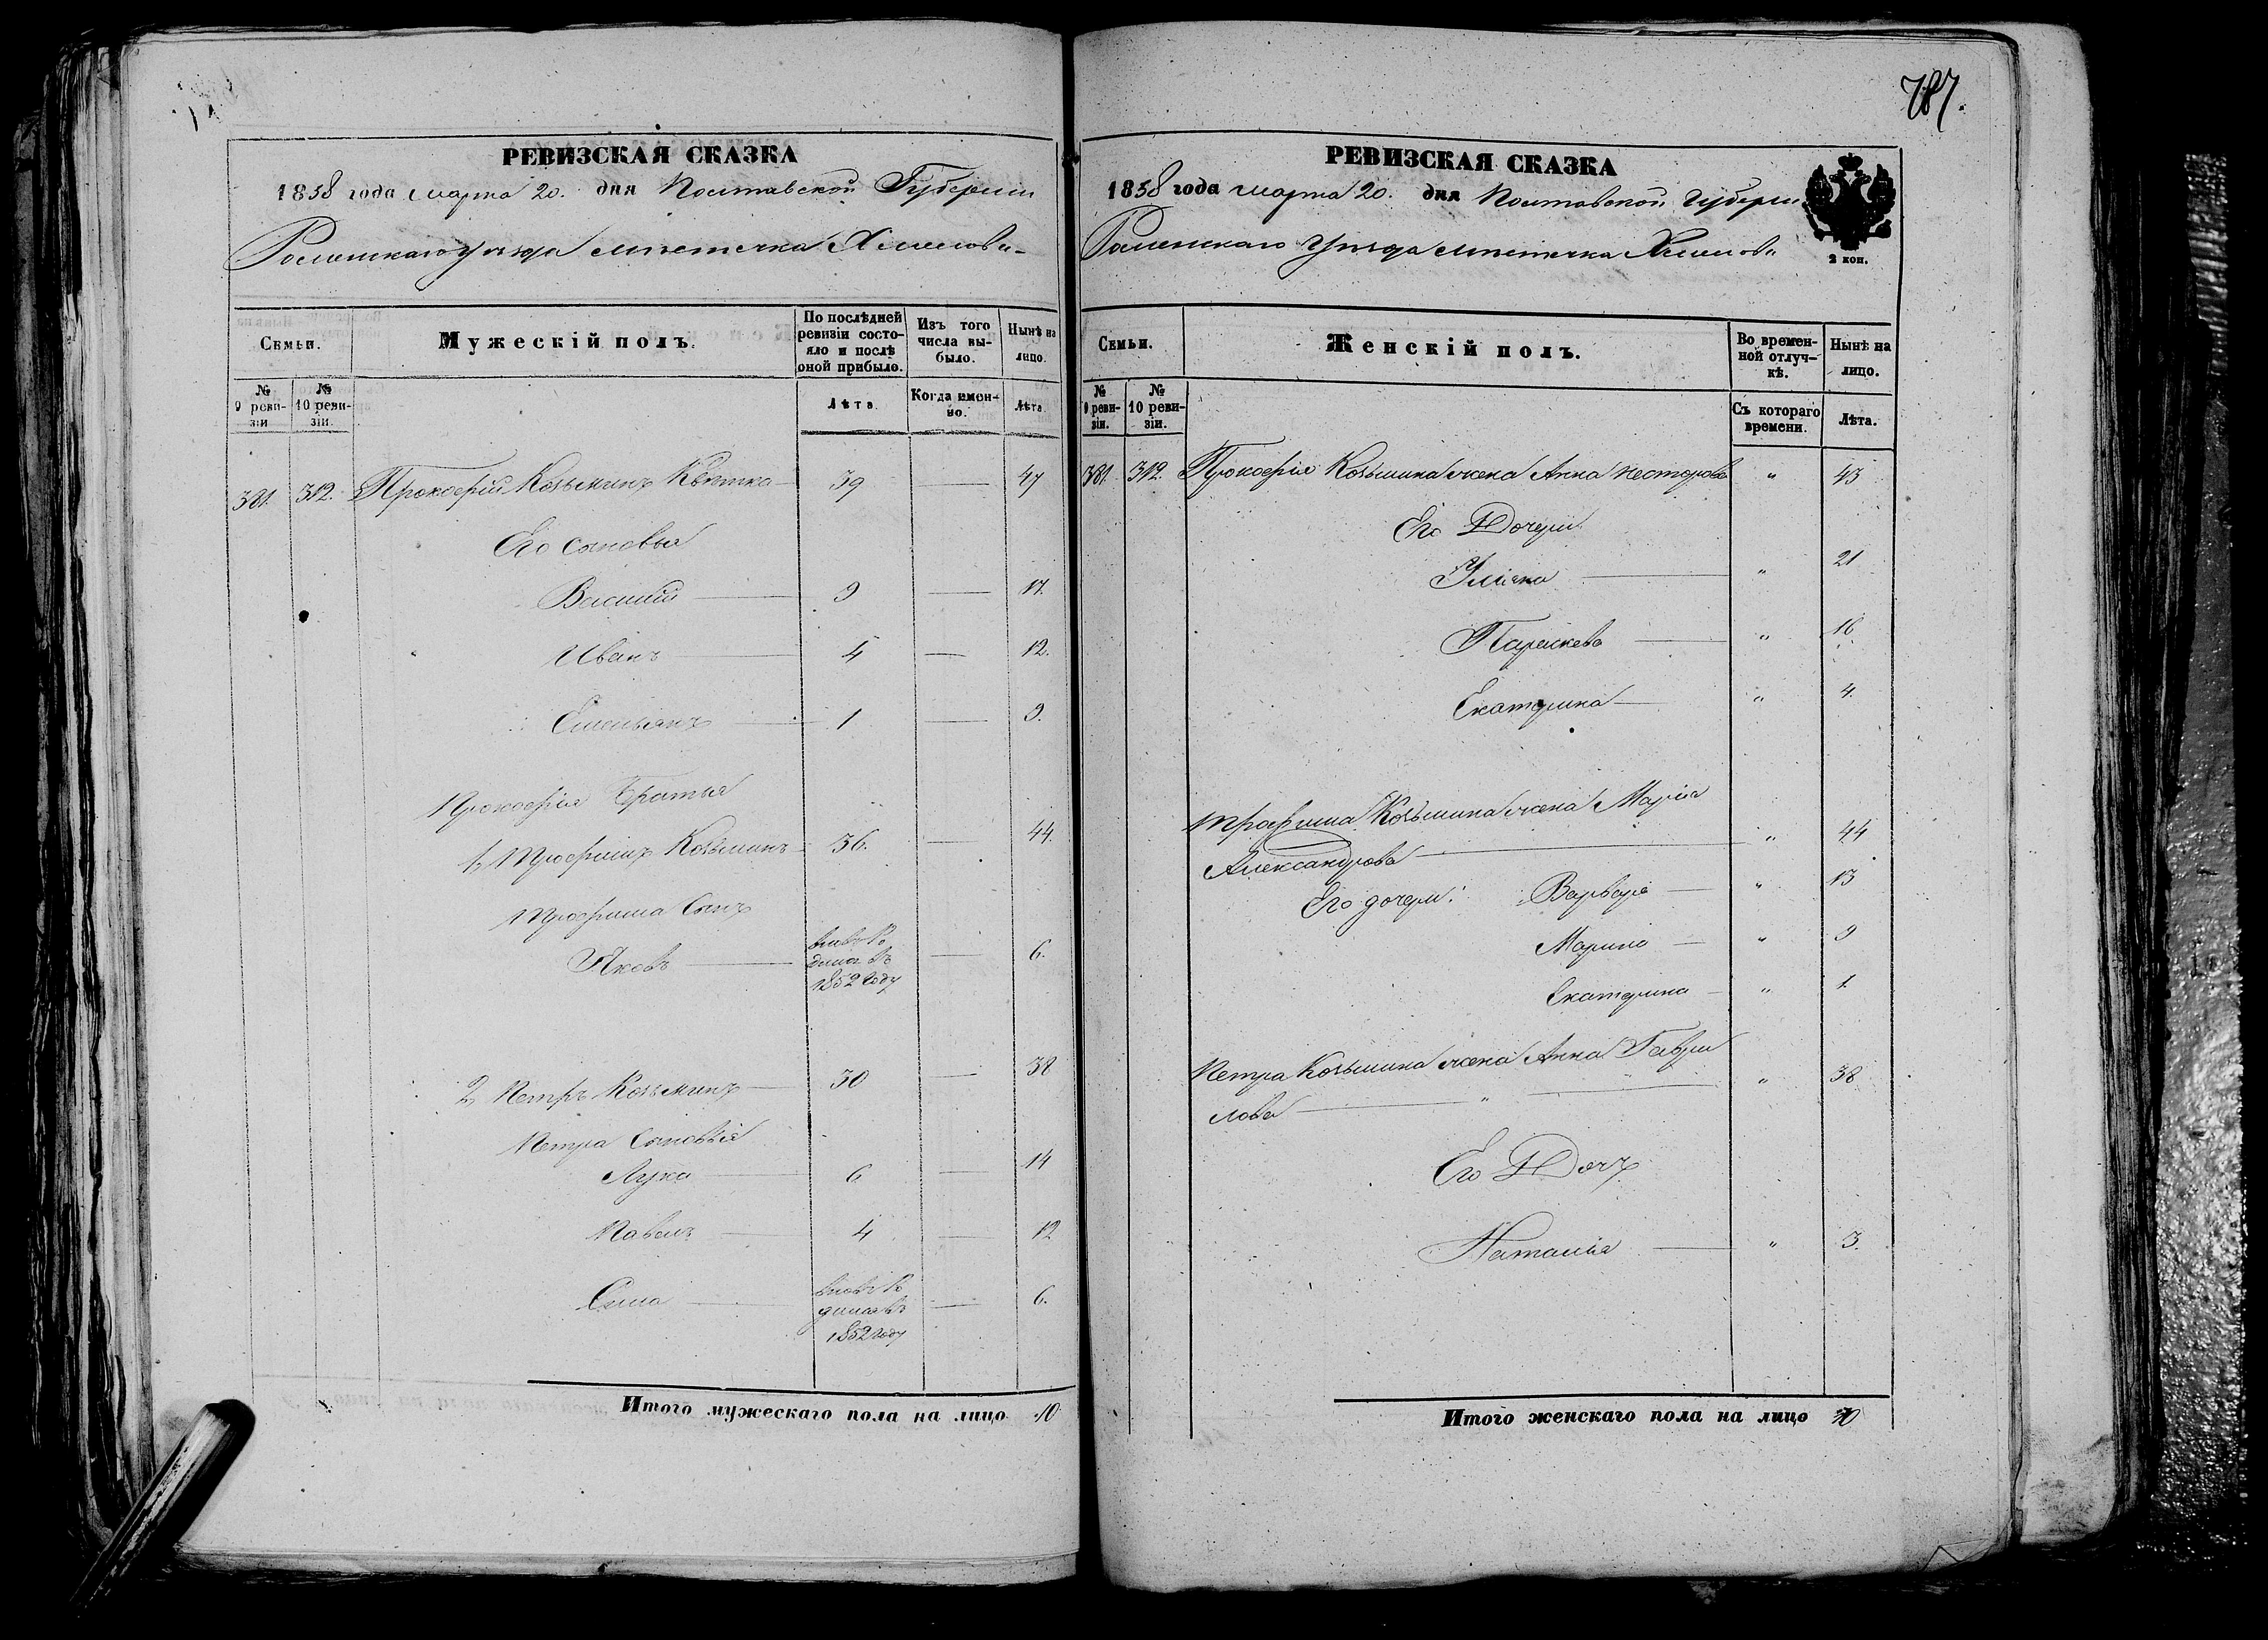 787.
РЕВИЗСКАЯ СКАЗКА
1858 года марта 20. дня Полтавской Губернии
Роменского уѣзда мѣстечка Хмелова
Семьи.
Мужескій полъ.
По послѣдней ревизіи состояло и послѣ оной прибыло.
Изъ того числа выбыло.
Нынѣ на лицо.
№ 9 ревизіи
№ 10 ревизіи.
Лѣта
Когда именно.
Лѣта
381. 312. Прокофій Козьминъ Квитка 39 47
Его сыновья
Василій 9 17.
Иванъ 4 12.
Емельянъ 1 9.
Прокофія Братья
1, Трофимъ Козьминъ 36. 44.
Трофима Сынъ
Яковъ 6.
1852 году
2, Петръ Козьминъ 30 38
Петра Сыновья
Лука 6 14
Павелъ 4 12
Сыла 6.
1852 году
Итого мужескаго пола на лицо 10
РЕВИЗСКАЯ СКАЗКА
1858 года марта 20. дня Полтавской Губерніи
Роменскаго Уѣзда мѣстечка Хмелова
2 коп.
Семьи.
Женскій полъ.
Во временной отлучкѣ.
Нынѣ на лицо.
№ 9 ревизіи.
№ 10 ревизіи.
Съ котораго времени.
Лѣта.
381. 312. Прокофія Козьмина жена Анна Несторова " 43
Его Дочери
Уліяна " 21
Параскева " 16
Екатерина " 4.
Трофима Козьмина жена Марія
Александрова " 44
Его дочери: Варвара " 13
Марина " 9
Екатерина " 1.
Петра Козьмина жена Анна Гаври
лова " " 38
Его Дочь
Наталія " 3.
Итого женскаго пола на лицо 10